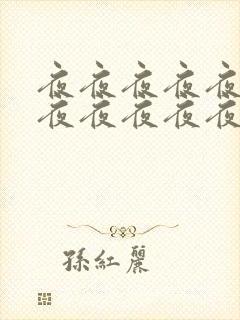 夜夜夜夜夜
夜夜夜夜夜
孫紅麗